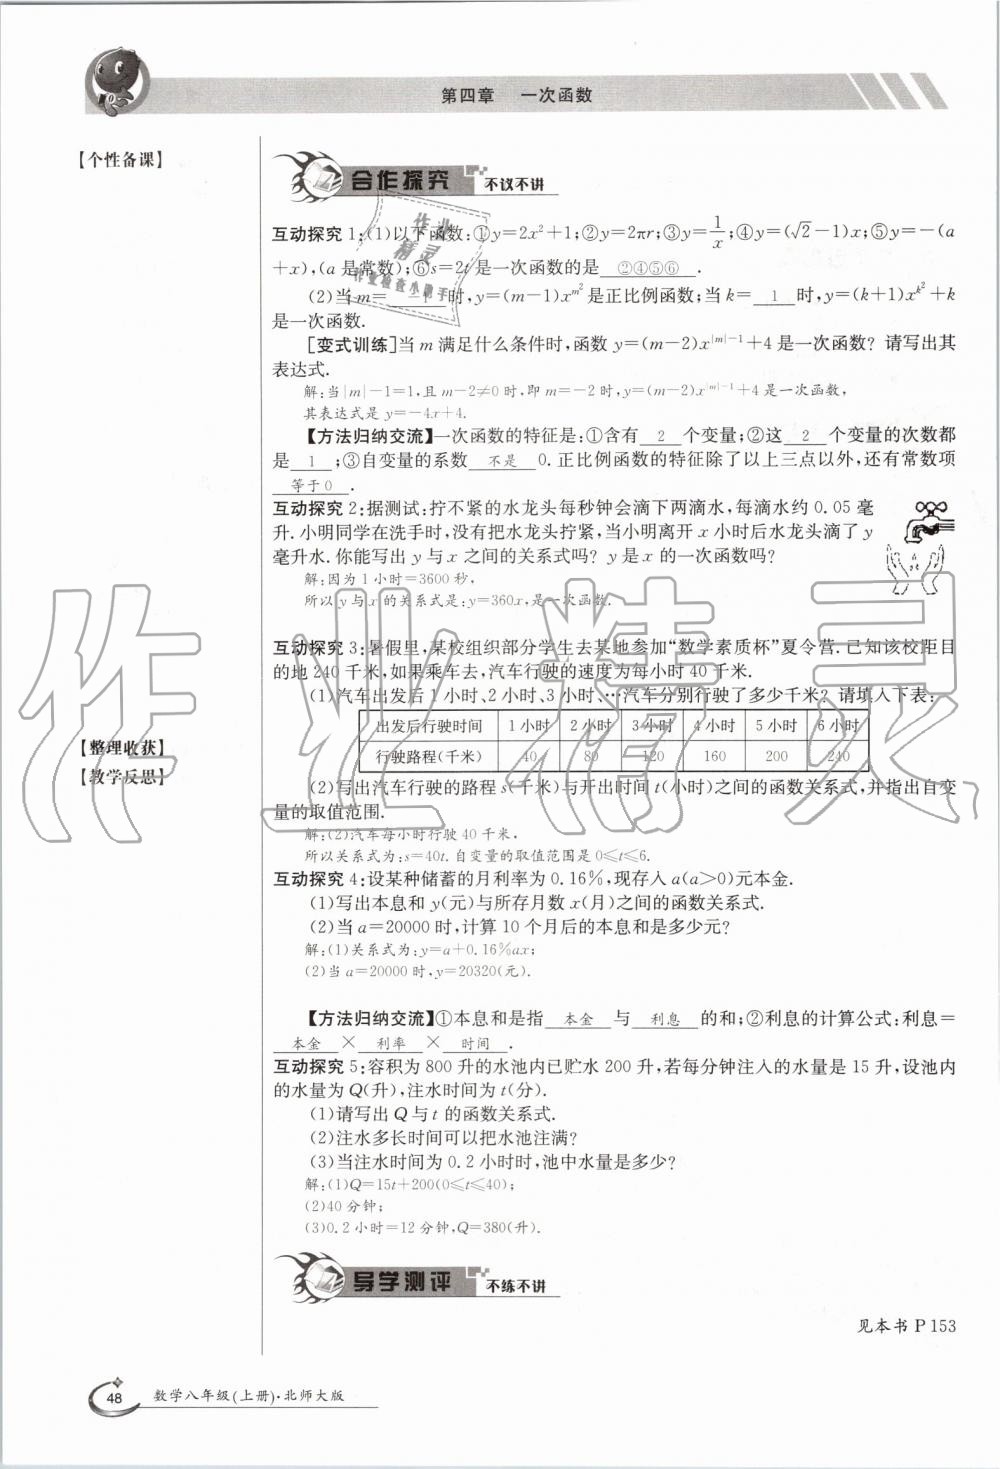 第四章 一次函数
【个性备课】
合作探究 不议不讲
互动探究1:(1)以下函数:①y=2x²+1;②y=2πr;③y=1/x;④y=(√2-1)x;⑤y=-(a
+x),(a是常数);⑥s=2t是一次函数的是 ②④⑤⑥ .
(2)当m= -1 时,y=(m-1)x^m²是正比例函数;当k= 1 时,y=(k+1)x^k²+k
是一次函数.
[变式训练]当m满足什么条件时,函数y=(m-2)x^|m|-1+4是一次函数? 请写出其
表达式.
解:当|m|-1=1,且m-2≠0时,即m=-2时,y=(m-2)x^|m|-1+4是一次函数,
其表达式是y=-4x+4.
【方法归纳交流】一次函数的特征是:①含有 2 个变量;②这 2 个变量的次数都
是 1 ;③自变量的系数 不是 0.正比例函数的特征除了以上三点以外,还有常数项
等于0 .
互动探究2:据测试:拧不紧的水龙头每秒钟会滴下两滴水,每滴水约0.05毫
升.小明同学在洗手时,没有把水龙头拧紧,当小明离开x小时后水龙头滴了y
毫升水.你能写出y与x之间的关系式吗? y是x的一次函数吗?
解:因为1小时=3600秒,
所以y与x的关系式是:y=360x,是一次函数.
互动探究3:暑假里,某校组织部分学生去某地参加“数学素质杯”夏令营.已知该校距目
的地240千米,如果乘车去,汽车行驶的速度为每小时40千米.
(1)汽车出发后1小时、2小时、3小时、…汽车分别行驶了多少千米? 请填入下表:
出发后行驶时间 1小时 2小时 3小时 4小时 5小时 6小时
行驶路程(千米) 40 80 120 160 200 240
【整理收获】
【教学反思】
(2)写出汽车行驶的路程s(千米)与开出时间t(小时)之间的函数关系式,并指出自变
量的取值范围.
解:(2)汽车每小时行驶40千米,
所以关系式为:s=40t.自变量的取值范围是0≤t≤6.
互动探究4:设某种储蓄的月利率为0.16%,现存入a(a>0)元本金.
(1)写出本息和y(元)与所存月数x(月)之间的函数关系式.
(2)当a=20000时,计算10个月后的本息和是多少元?
解:(1)关系式为:y=a+0.16%ax;
(2)当a=20000时,y=20320(元).
【方法归纳交流】①本息和是指 本金 与 利息 的和;②利息的计算公式:利息=
本金 × 利率 × 时间 .
互动探究5:容积为800升的水池内已贮水200升,若每分钟注入的水量是15升,设池内
的水量为Q(升),注水时间为t(分).
(1)请写出Q与t的函数关系式.
(2)注水多长时间可以把水池注满?
(3)当注水时间为0.2小时时,池中水量是多少?
解:(1)Q=15t+200(0≤t≤40);
(2)40分钟;
(3)0.2小时=12分钟,Q=380(升).
导学测评 不练不讲
见本书P153
48 数学八年级(上册)·北师大版
作业精灵
作业检查小助手
作业精灵